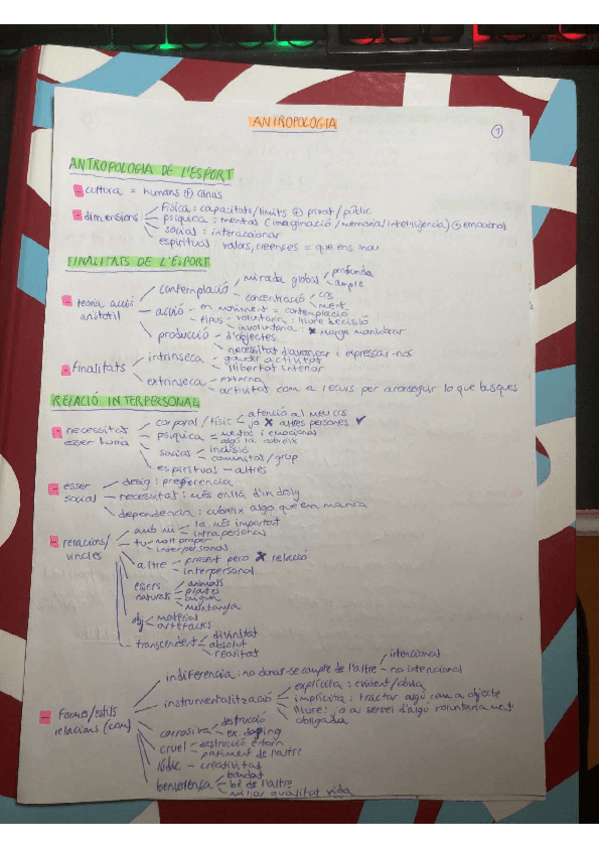 ANTROPOLOGIA
1
ANTROPOLOGIA DE L'ESPORT
cultura = humans ⊕ canvis
dimensions
física: capacitats/límits ⊕ privat/públic
psíquica: mental (imaginació/memòria/intel·ligència) ⊕ emocional
social: interaccionar
espiritual: valors, creences = que ens mou
FINALITATS DE L'ESPORT
teoria acció aristòtil
contemplació
mirada global
profunda
ample
concentració
cos
ment
acció
en moviment = contemplació
tipus
voluntària: lliure decisió
involuntària: ✗ marge maniobrar
producció
d'objectes
necessitat d'avançar i expressar-nos
Finalitats
intrínseca
gaudir activitat
llibertat interior
extrínseca
externa
activitat com a recurs per aconseguir lo que busques
RELACIÓ INTERPERSONAL
necessitat esser humà
corporal/físic
atenció al MEU cos
jo ✗ altres persones ✓
psíquica = mental i emocional
social
inclusió
comunitat/grup
espiritual - altres
esser social
desig: preferència
necessitat: més enllà d'un desig
dependència: cobreix algo que em manca
relacions/vincles
amb mi
la més important
intrapersonal
tu
molt proper
interpersonal
altre
present però ✗ relació
interpersonal
éssers naturals
animals
plantes
aigua
muntanya
obj
material
artefactes
transcendent
divinitat
absolut
realitat
Formes/estils relacions (com)
indiferència: no donar-se compte de l'altre
intencional
no intencional
instrumentalització
explícita: evident/obvia
implícita: tractar algú com a objecte
lliure: jo a servei d'algú voluntàriament
obligada
corrosiva
destrucció
ex. doping
cruel
destrucció extrem
patiment de l'altre
lúdic - creativitat
benvolença
bondat
bé de l'altre
millor qualitat vida